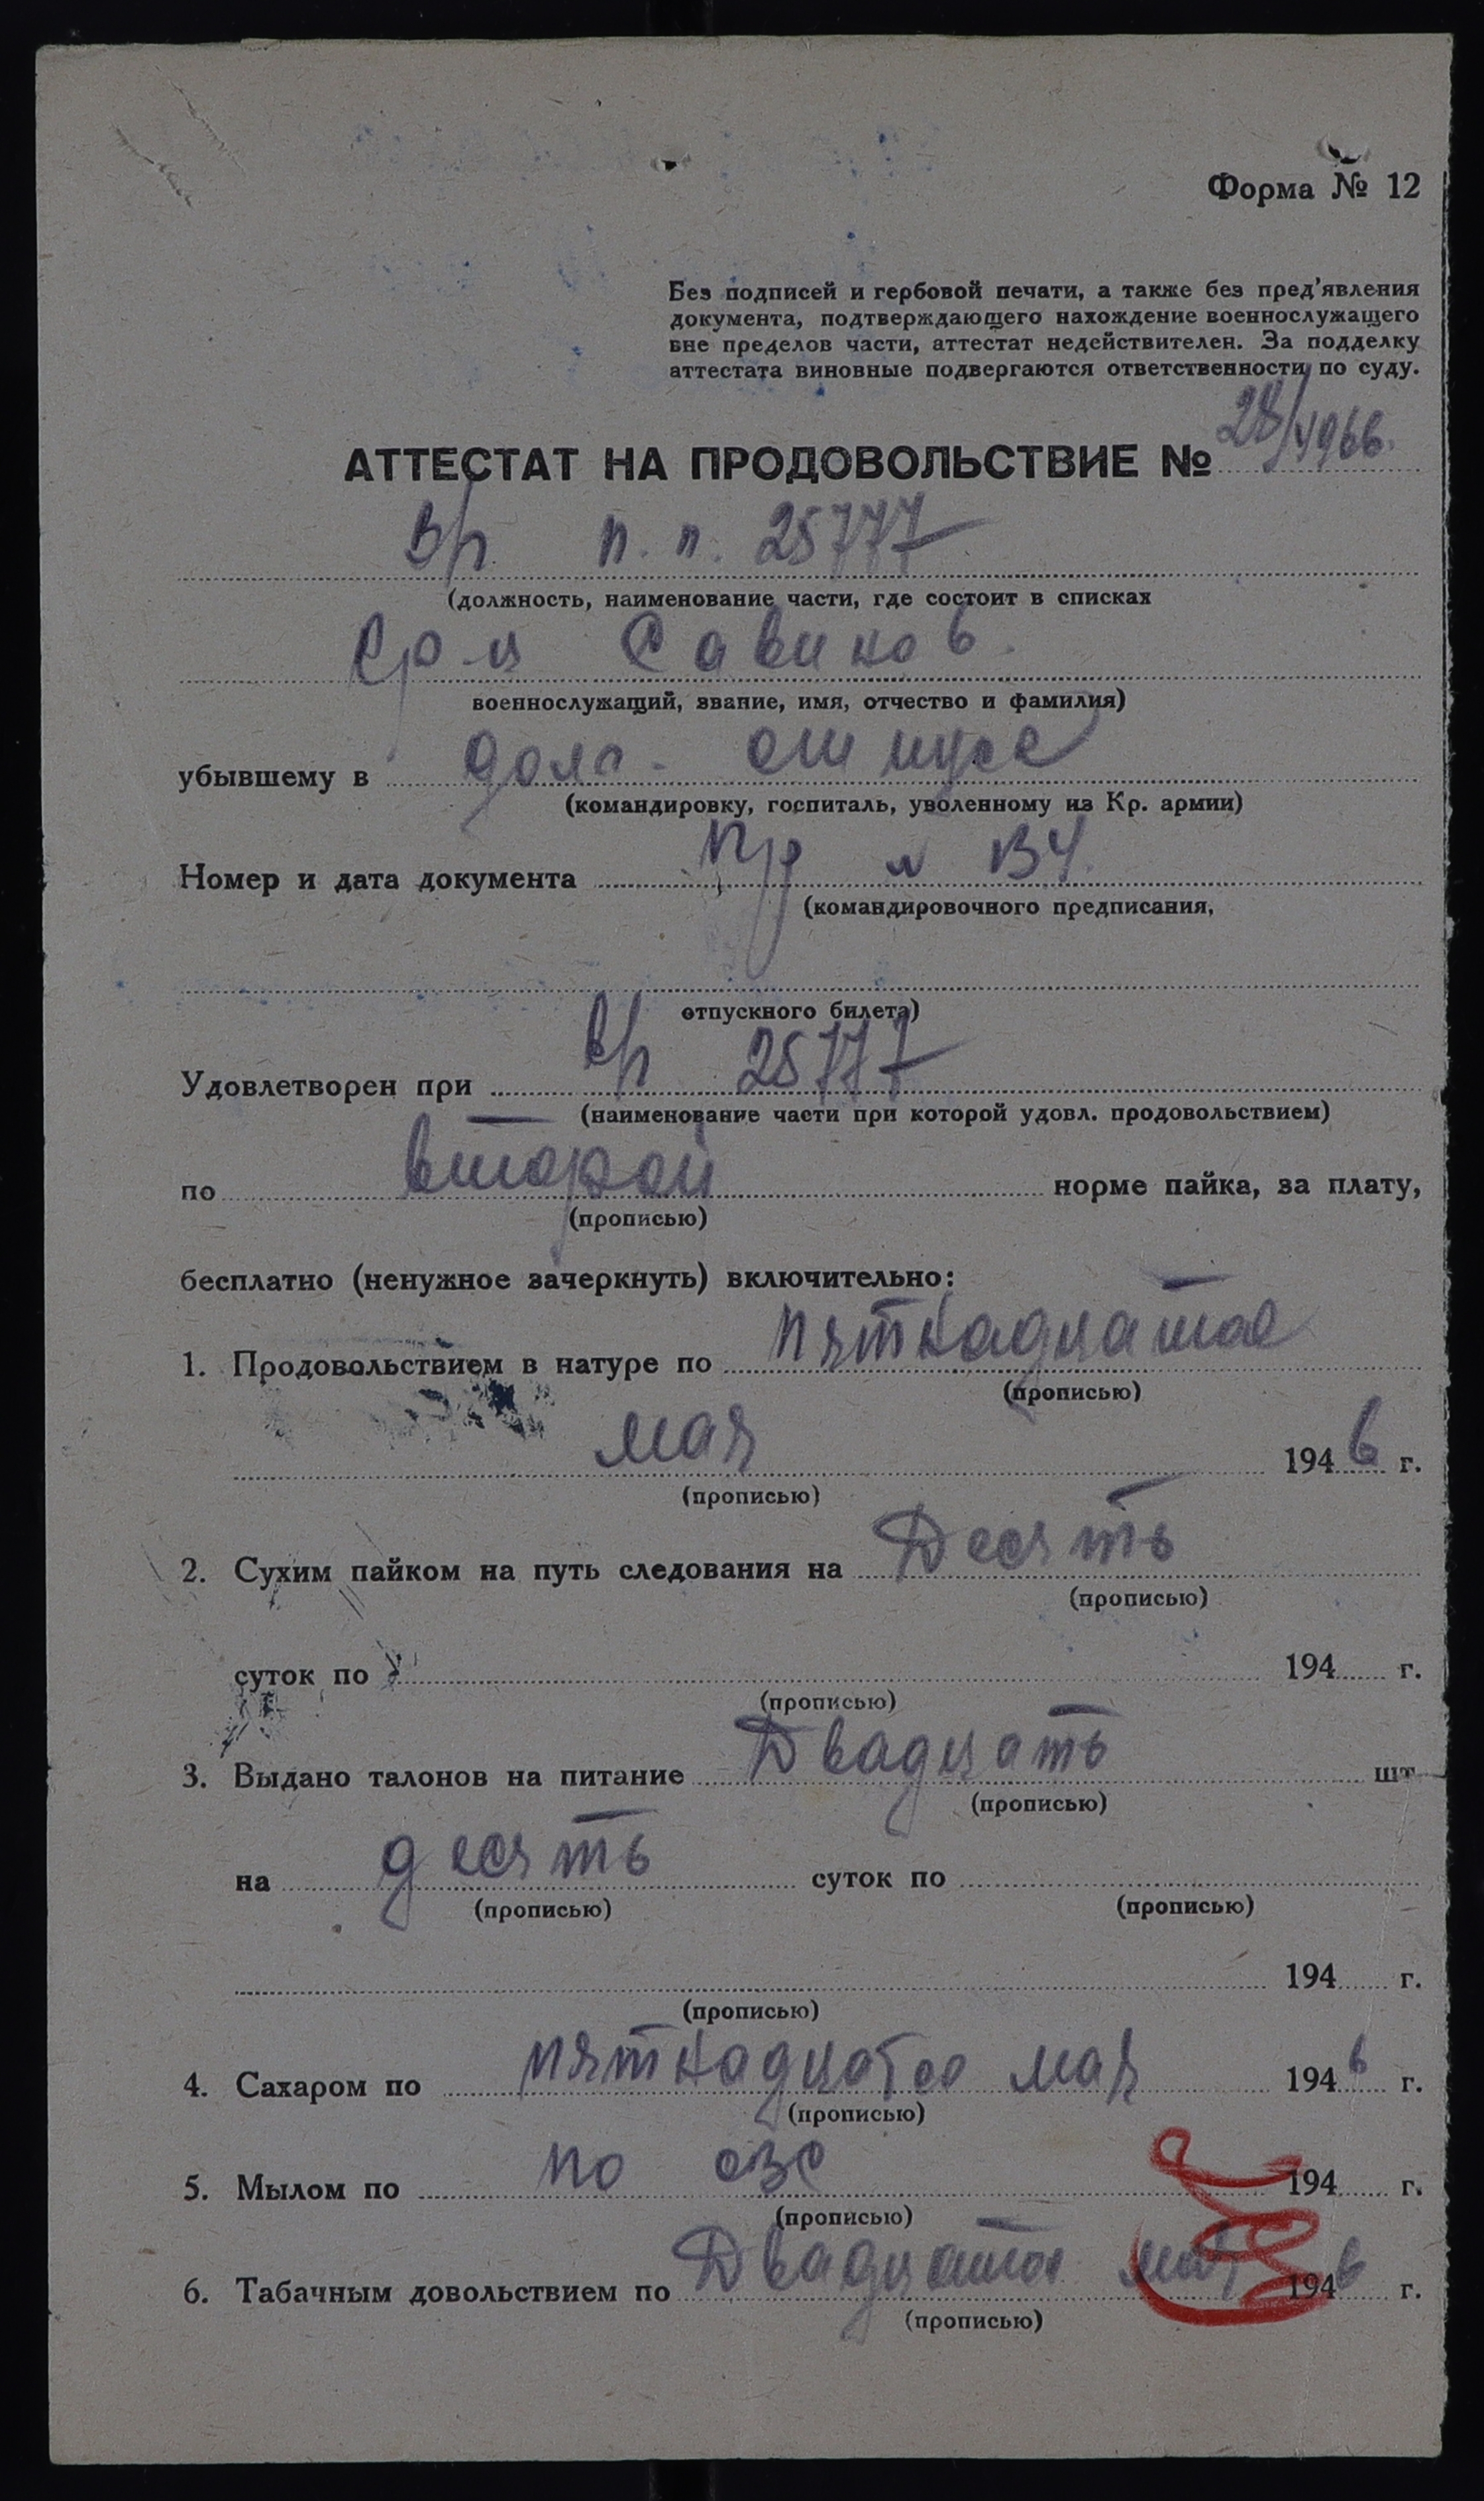 Форма № 12
Без подписей и гербовой печати, а также без пред'явления
документа, подтверждающего нахождение военнослужащего
вне пределов части, аттестат недействителен. За подделку
аттестата виновные подвергаются ответственности по суду.
АТТЕСТАТ НА ПРОДОВОЛЬСТВИЕ № 28/4966.
В/ч п. п. 25777
(должность, наименование части, где состоит в списках
Савинов.
военнослужащий, звание, имя, отчество и фамилия)
убывшему в долг. отпуск
(командировку, госпиталь, уволенному из Кр. армии)
Номер и дата документа Пр В/ч.
(командировочного предписания,
отпускного билета)
Удовлетворен при в/ч 25777
(наименование части при которой удовл. продовольствием)
по второй норме пайка, за плату,
(прописью)
бесплатно (ненужное зачеркнуть) включительно:
1. Продовольствием в натуре по пятнадцатое
(прописью)
мая 1946 г.
(прописью)
2. Сухим пайком на путь следования на Десять
(прописью)
суток по 194 г.
(прописью)
3. Выдано талонов на питание Двадцать шт
(прописью)
на десять суток по
(прописью) (прописью)
194 г.
(прописью)
4. Сахаром по пятнадцатое мая 1946 г.
(прописью)
5. Мылом по по 194 г.
(прописью)
6. Табачным довольствием по Двадцатое мая 1946 г.
(прописью)